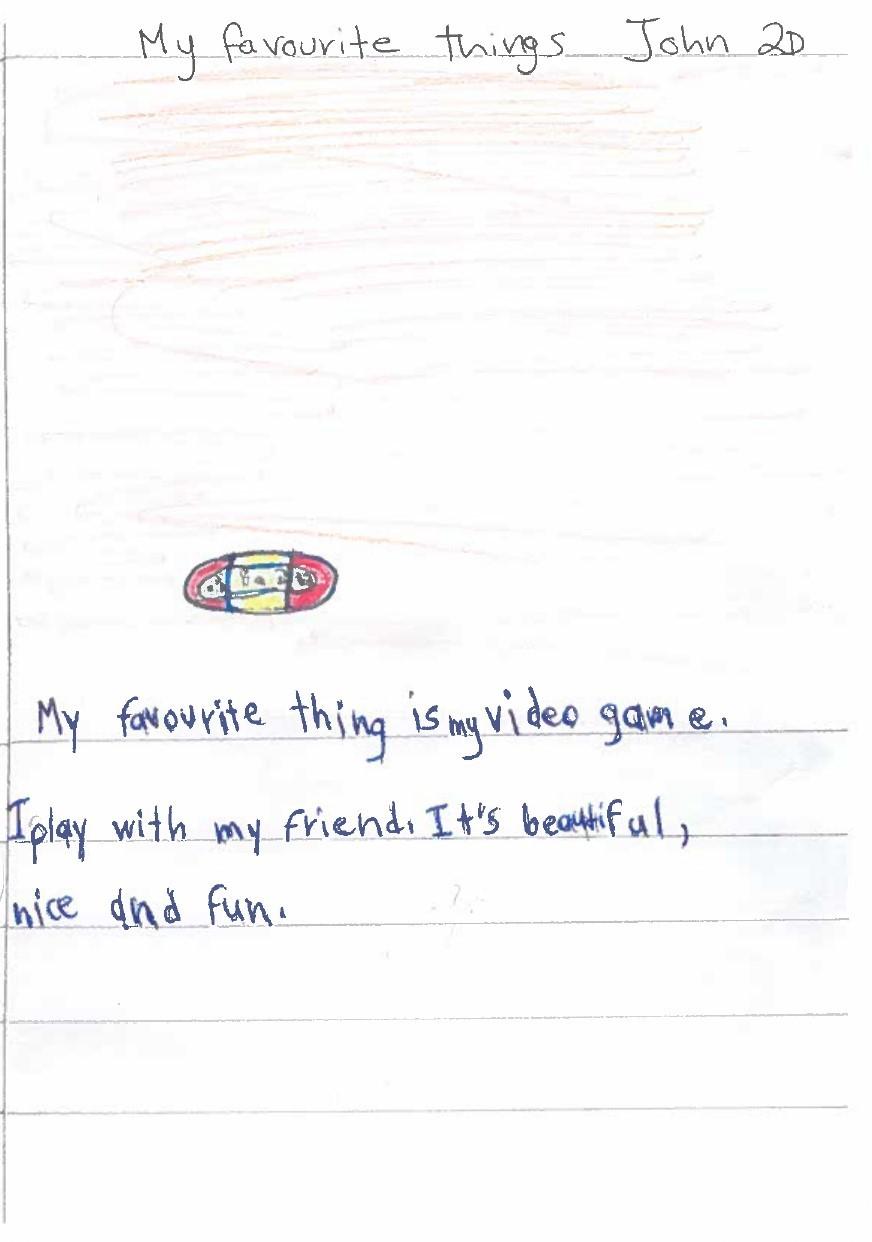 My favourite things John 2D
My favourite thing is my video game.
I play with my friend. It's beautiful,
nice and fun.